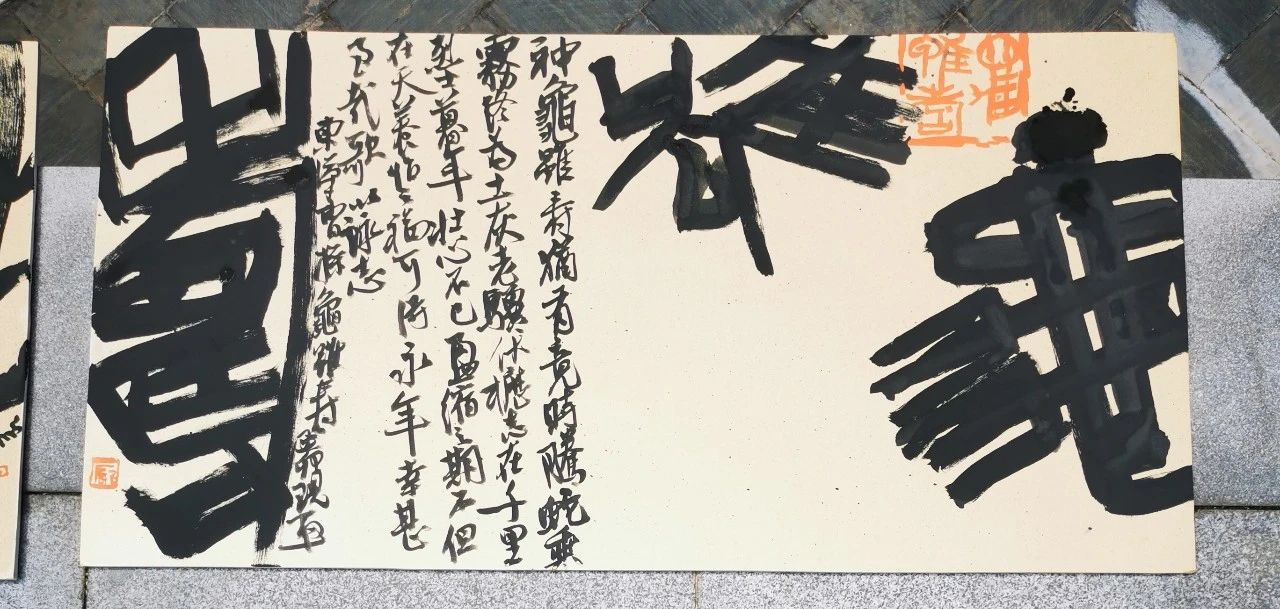 龜
雖
壽
神龜雖寿猶有竟時騰蛇乘
霧終為土灰老驥伏櫪志在千里
烈士暮年壯心不已盈縮之期不但
在天養怡之福可得永年幸甚
至哉歌以詠志
東漢曹操龜雖寿